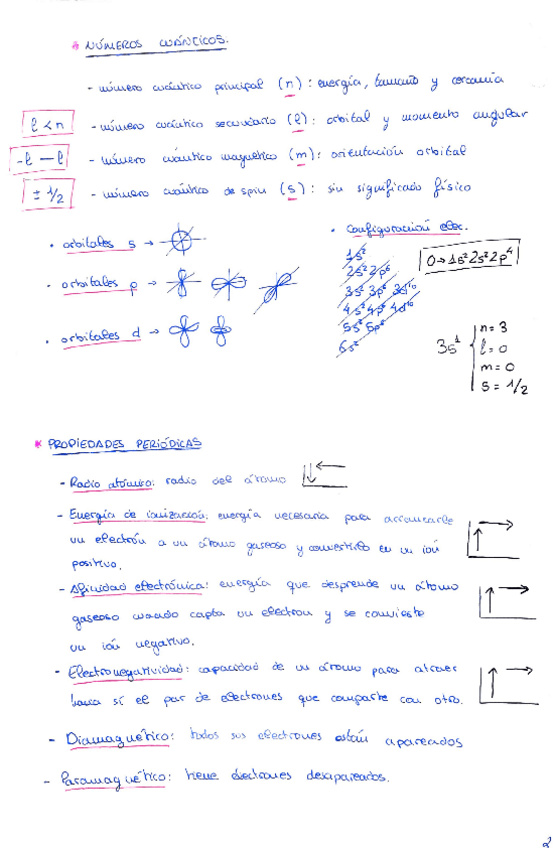 * NÚMEROS CUÁNTICOS.
- número cuántico principal (n): energía, tamaño y cercanía
l < n - número cuántico secundario (l): orbital y momento angular
-l — l - número cuántico magnético (m): orientación orbital
± 1/2 - número cuántico de spin (s): sin significado físico
· orbitales s →
· orbitales p →
· orbitales d →
· Configuración elec.
1s²
2s² 2p⁶
3s² 3p⁶ 3d¹⁰
4s² 4p⁶ 4d¹⁰
5s² 5p⁶
6s²
O → 1s² 2s² 2p⁴
3s¹
n = 3
l = 0
m = 0
s = 1/2
* PROPIEDADES PERIÓDICAS
- Radio atómico: radio del átomo
- Energía de ionización: energía necesaria para arrancarle
un electrón a un átomo gaseoso y convertirlo en un ión
positivo.
- Afinidad electrónica: energía que desprende un átomo
gaseoso cuando capta un electron y se convierte
un ión negativo.
- Electronegatividad: capacidad de un átomo para atraer
hacia sí el par de electrones que comparte con otro.
- Diamagnético: todos sus electrones están apareados
- Paramagnético: tiene electrones desapareados.
2